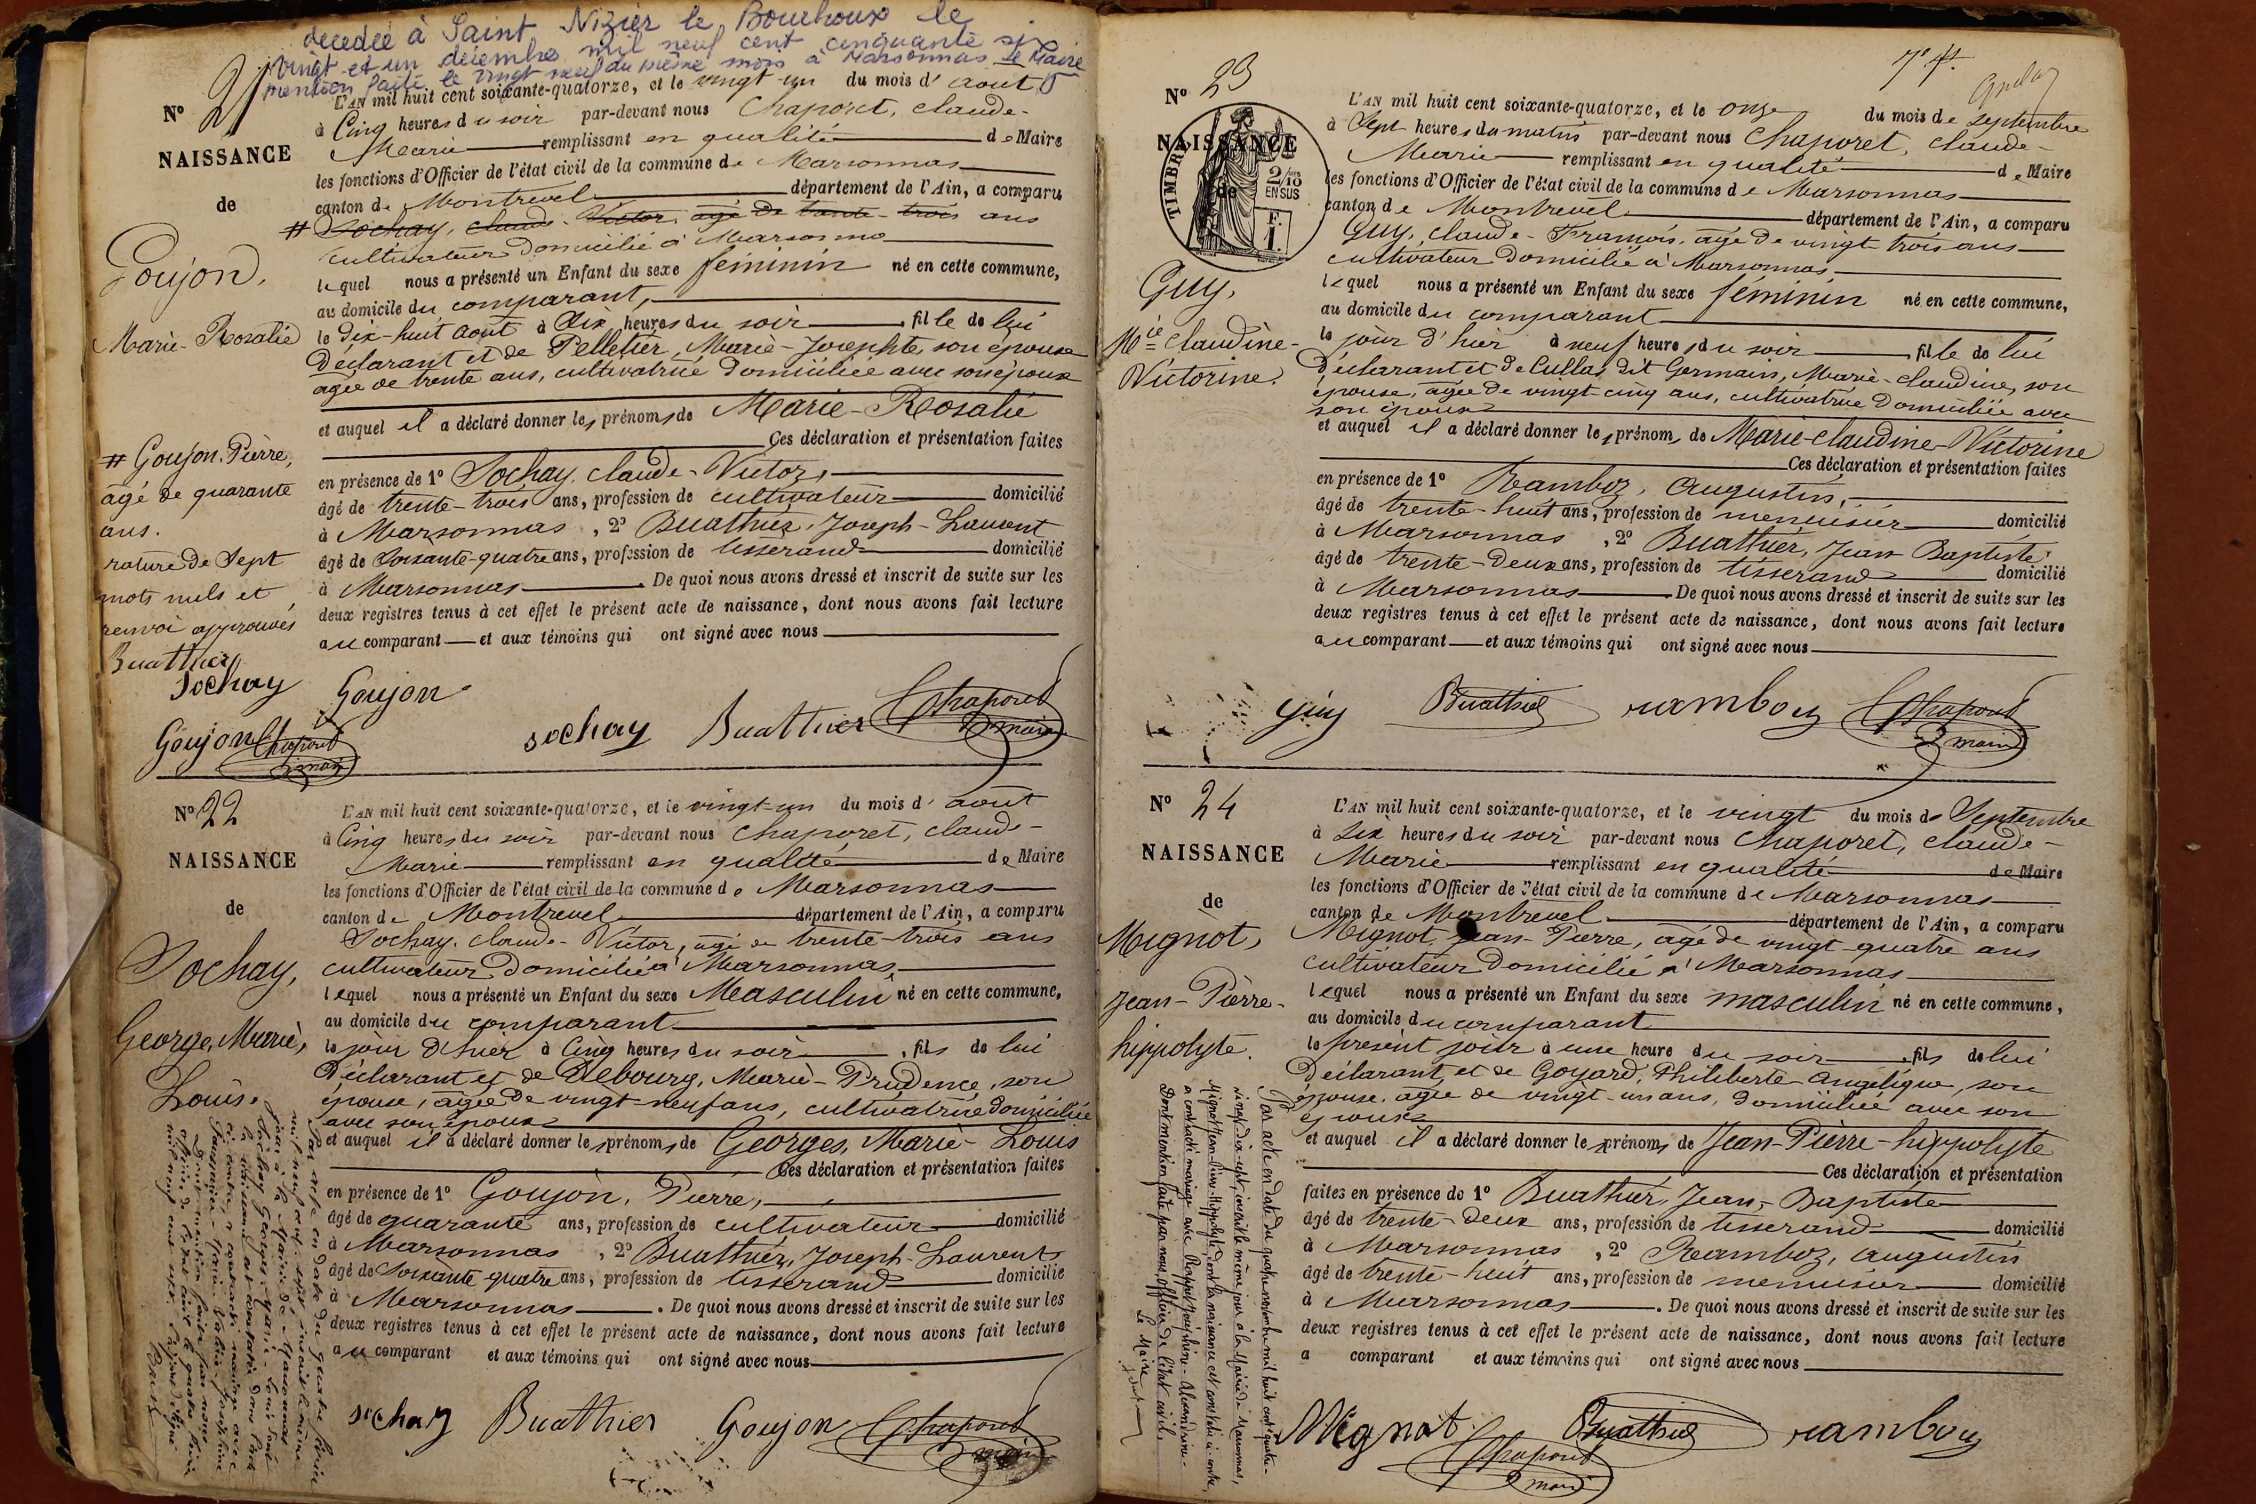 décédée à Saint Nizier le Bouchoux le
vingt et un décembre mil neuf cent cinquante six
mention faite le vingt neuf du même mois à Marsonnas le Maire
N° 21
NAISSANCE
de
Goujon,
Marie-Rosalie
# Goujon Pierre,
âgé de quarante
ans.
rature de Sept
mots nuls et
renvoi approuvés
Buathier
Sochay
Goujon
Chaporet
maire
L'AN mil huit cent soixante-quatorze, et le vingt-un du mois d'août
à Cinq heures du soir par-devant nous Chaporet, Claude-
Marie remplissant en qualité de Maire
les fonctions d'Officier de l'état civil de la commune de Marsonnas
canton de Montrevel département de l'Ain, a comparu
# Sochay, Claude-Victor, âgé de trente-trois ans
cultivateur domicilié à Marsonna
lequel nous a présenté un Enfant du sexe féminin né en cette commune,
au domicile du comparant,
le dix-huit août à Dix heures du soir fille de lui
Déclarant et de Pelletier, Marie-Josephte, son épouse
âgée de trente ans, cultivatrice domiciliée avec son époux
et auquel il a déclaré donner les prénoms de Marie-Rosalie
Ces déclaration et présentation faites
en présence de 1° Sochay, Claude-Victor,
âgé de trente-trois ans, profession de cultivateur domicilié
à Marsonnas, 2° Buathier, Joseph-Laurent
âgé de Soixante-quatre ans, profession de tisserand domicilié
à Marsonnas. De quoi nous avons dressé et inscrit de suite sur les
deux registres tenus à cet effet le présent acte de naissance, dont nous avons fait lecture
au comparant et aux témoins qui ont signé avec nous
Goujon
sochay Buathier Chaporet
maire
N° 22
NAISSANCE
de
Sochay,
George, Marie,
Louis.
L'AN mil huit cent soixante-quatorze, et le vingt-un du mois d'août
à Cinq heures du soir par-devant nous Chaporet, Claude-
Marie remplissant en qualité de Maire
les fonctions d'Officier de l'état civil de la commune de Marsonnas
canton de Montrevel département de l'Ain, a comparu
Sochay, Claude-Victor, âgé de trente-trois ans
cultivateur domicilié à Marsonnas
lequel nous a présenté un Enfant du sexe Masculin né en cette commune,
au domicile du comparant
le jour d'hier à Cinq heures du soir, fils de lui
Déclarant et de Debourg, Marie-Prudence, son
épouse, âgée de vingt-neuf ans, cultivatrice domiciliée
avec son époux
et auquel il a déclaré donner les prénoms de Georges, Marie-Louis
Ces déclaration et présentation faites
en présence de 1° Goujon, Pierre,
âgé de quarante ans, profession de cultivateur domicilié
à Marsonnas, 2° Buathier, Joseph-Laurent
âgé de Soixante quatre ans, profession de tisserand domicilié
à Marsonnas. De quoi nous avons dressé et inscrit de suite sur les
deux registres tenus à cet effet le présent acte de naissance, dont nous avons fait lecture
au comparant et aux témoins qui ont signé avec nous
sochay Buathier Goujon Chaporet
maire
7e ft.
N° 23
NAISSANCE
de
TIMBRE
2/10
EN SUS
F.
1.
Guy,
Mie Claudine-
Victorine.
L'AN mil huit cent soixante-quatorze, et le onze du mois de septembre
à Sept heures du matin par-devant nous Chaporet, Claude-
Marie remplissant en qualité de Maire
les fonctions d'Officier de l'état civil de la commune de Marsonnas
canton de Montrevel département de l'Ain, a comparu
Guy, Claude-François, âgé de vingt trois ans
cultivateur domicilié à Marsonnas
lequel nous a présenté un Enfant du sexe féminin né en cette commune,
au domicile du comparant
le jour d'hier à neuf heures du soir, fille de lui
Déclarant et de Cullas dit Germain, Marie-Claudine, son
épouse, âgée de vingt-cinq ans, cultivatrice domiciliée avec
son époux
et auquel il a déclaré donner les prénoms de Marie-Claudine-Victorine
Ces déclaration et présentation faites
en présence de 1° Ramboz, Augustin,
âgé de trente-huit ans, profession de menuisier domicilié
à Marsonnas, 2° Buathier, Jean Baptiste
âgé de trente-deux ans, profession de tisserand domicilié
à Marsonnas. De quoi nous avons dressé et inscrit de suite sur les
deux registres tenus à cet effet le présent acte de naissance, dont nous avons fait lecture
au comparant et aux témoins qui ont signé avec nous
Guy Buathier ramboz Chaporet
maire
N° 24
NAISSANCE
de
Mignot,
Jean-Pierre-
hippolyte.
L'AN mil huit cent soixante-quatorze, et le vingt du mois de Septembre
à Six heures du soir par-devant nous Chaporet, Claude-
Marie remplissant en qualité de Maire
les fonctions d'Officier de l'état civil de la commune de Marsonnas
canton de Montrevel département de l'Ain, a comparu
Mignot, Jean-Pierre, âgé de vingt-quatre ans
cultivateur domicilié à Marsonnas
lequel nous a présenté un Enfant du sexe masculin né en cette commune,
au domicile du comparant
le présent jour à une heure du soir, fils de lui
Déclarant et de Goyard, Philiberte Angélique, son
épouse, âgée de vingt-un ans, domiciliée avec son
époux
et auquel il a déclaré donner les prénoms de Jean-Pierre-hippolyte
Ces déclaration et présentation
faites en présence de 1° Buathier, Jean-Baptiste
âgé de trente-deux ans, profession de tisserand domicilié
à Marsonnas, 2° Ramboz, Augustin
âgé de trente-huit ans, profession de menuisier domicilié
à Marsonnas. De quoi nous avons dressé et inscrit de suite sur les
deux registres tenus à cet effet le présent acte de naissance, dont nous avons fait lecture
a comparant et aux témoins qui ont signé avec nous
Mignot Buathier ramboz
Chaporet
maire
Par acte en date du quatre novembre mil huit cent quatre-
vingt dix-sept, inscrit le même jour à la Mairie de Marsonnas,
Mignot Jean-Pierre-Hippolyte, dont la naissance est constatée ci-contre,
a contracté mariage avec
Dont mention faite par nous, officier de l'état civil,
Le Maire